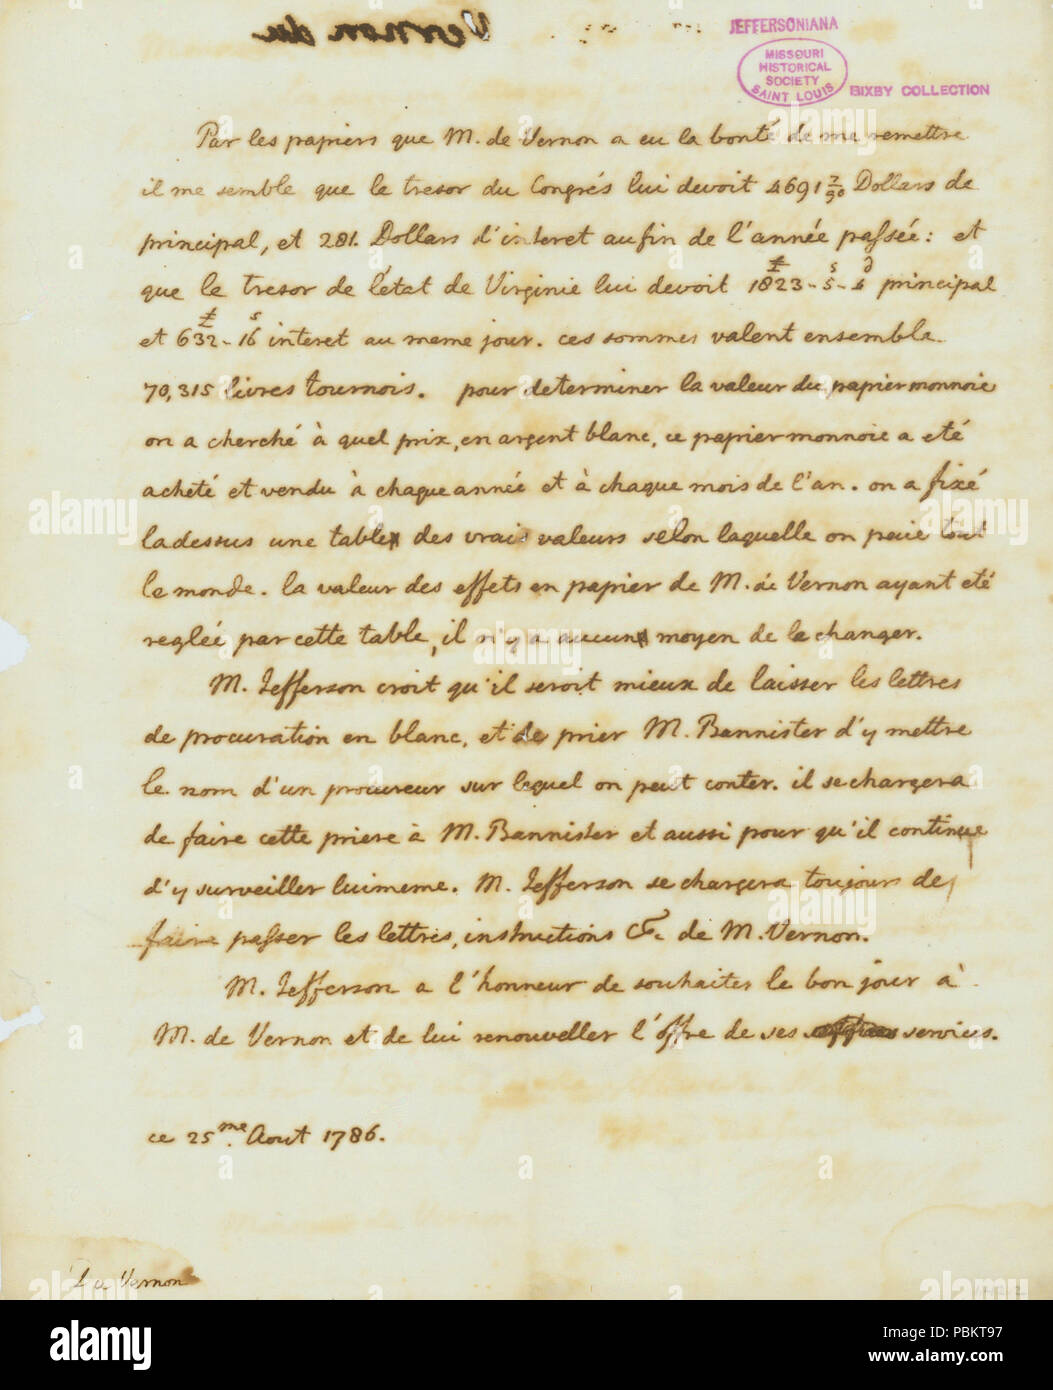 Vernon du
JEFFERSONIANA
MISSOURI
HISTORICAL
SOCIETY
SAINT LOUIS
BIXBY COLLECTION
Par les papiers que M. de Vernon a eu la bonté de me remettre
il me semble que le tresor du Congrés lui devoit 4691 7/90 Dollars de
principal, et 281. Dollars d'interet au fin de l'année passée: et
que le tresor de l'etat de Virginie lui devoit 1823£-5s-4d principal
et 632£-16s interet au meme jour. ces sommes valent ensemble
70,315 livres tournois. pour determiner la valeur du papier monnoie
on a cherché à quel prix, en argent blanc, ce papier monnoie a eté
acheté et vendu à chaque année et à chaque mois de l'an. on a fixé
la dessus une table des vrais valeurs selon laquelle on paie tout
le monde. la valeur des effets en papier de M. de Vernon ayant eté
reglée par cette table, il n'y a aucun moyen de le changer.
M. Jefferson croit qu'il seroit mieux de laisser les lettres
de procuration en blanc, et de prier M. Bannister d'y mettre
le nom d'un procureur sur lequel on peut conter. il se chargera
de faire cette priere à M. Bannister et aussi pour qu'il continue
d'y surveiller luimeme. M. Jefferson se chargera toujours de
faire passer les lettres, instructions &c. de M. Vernon.
M. Jefferson a l'honneur de souhaiter le bon jour à
M. de Vernon et de lui renouveller l'offre de ses services.
ce 25me. Aout 1786.
Vernon
alamy
Image ID: PBKT97
www.alamy.com